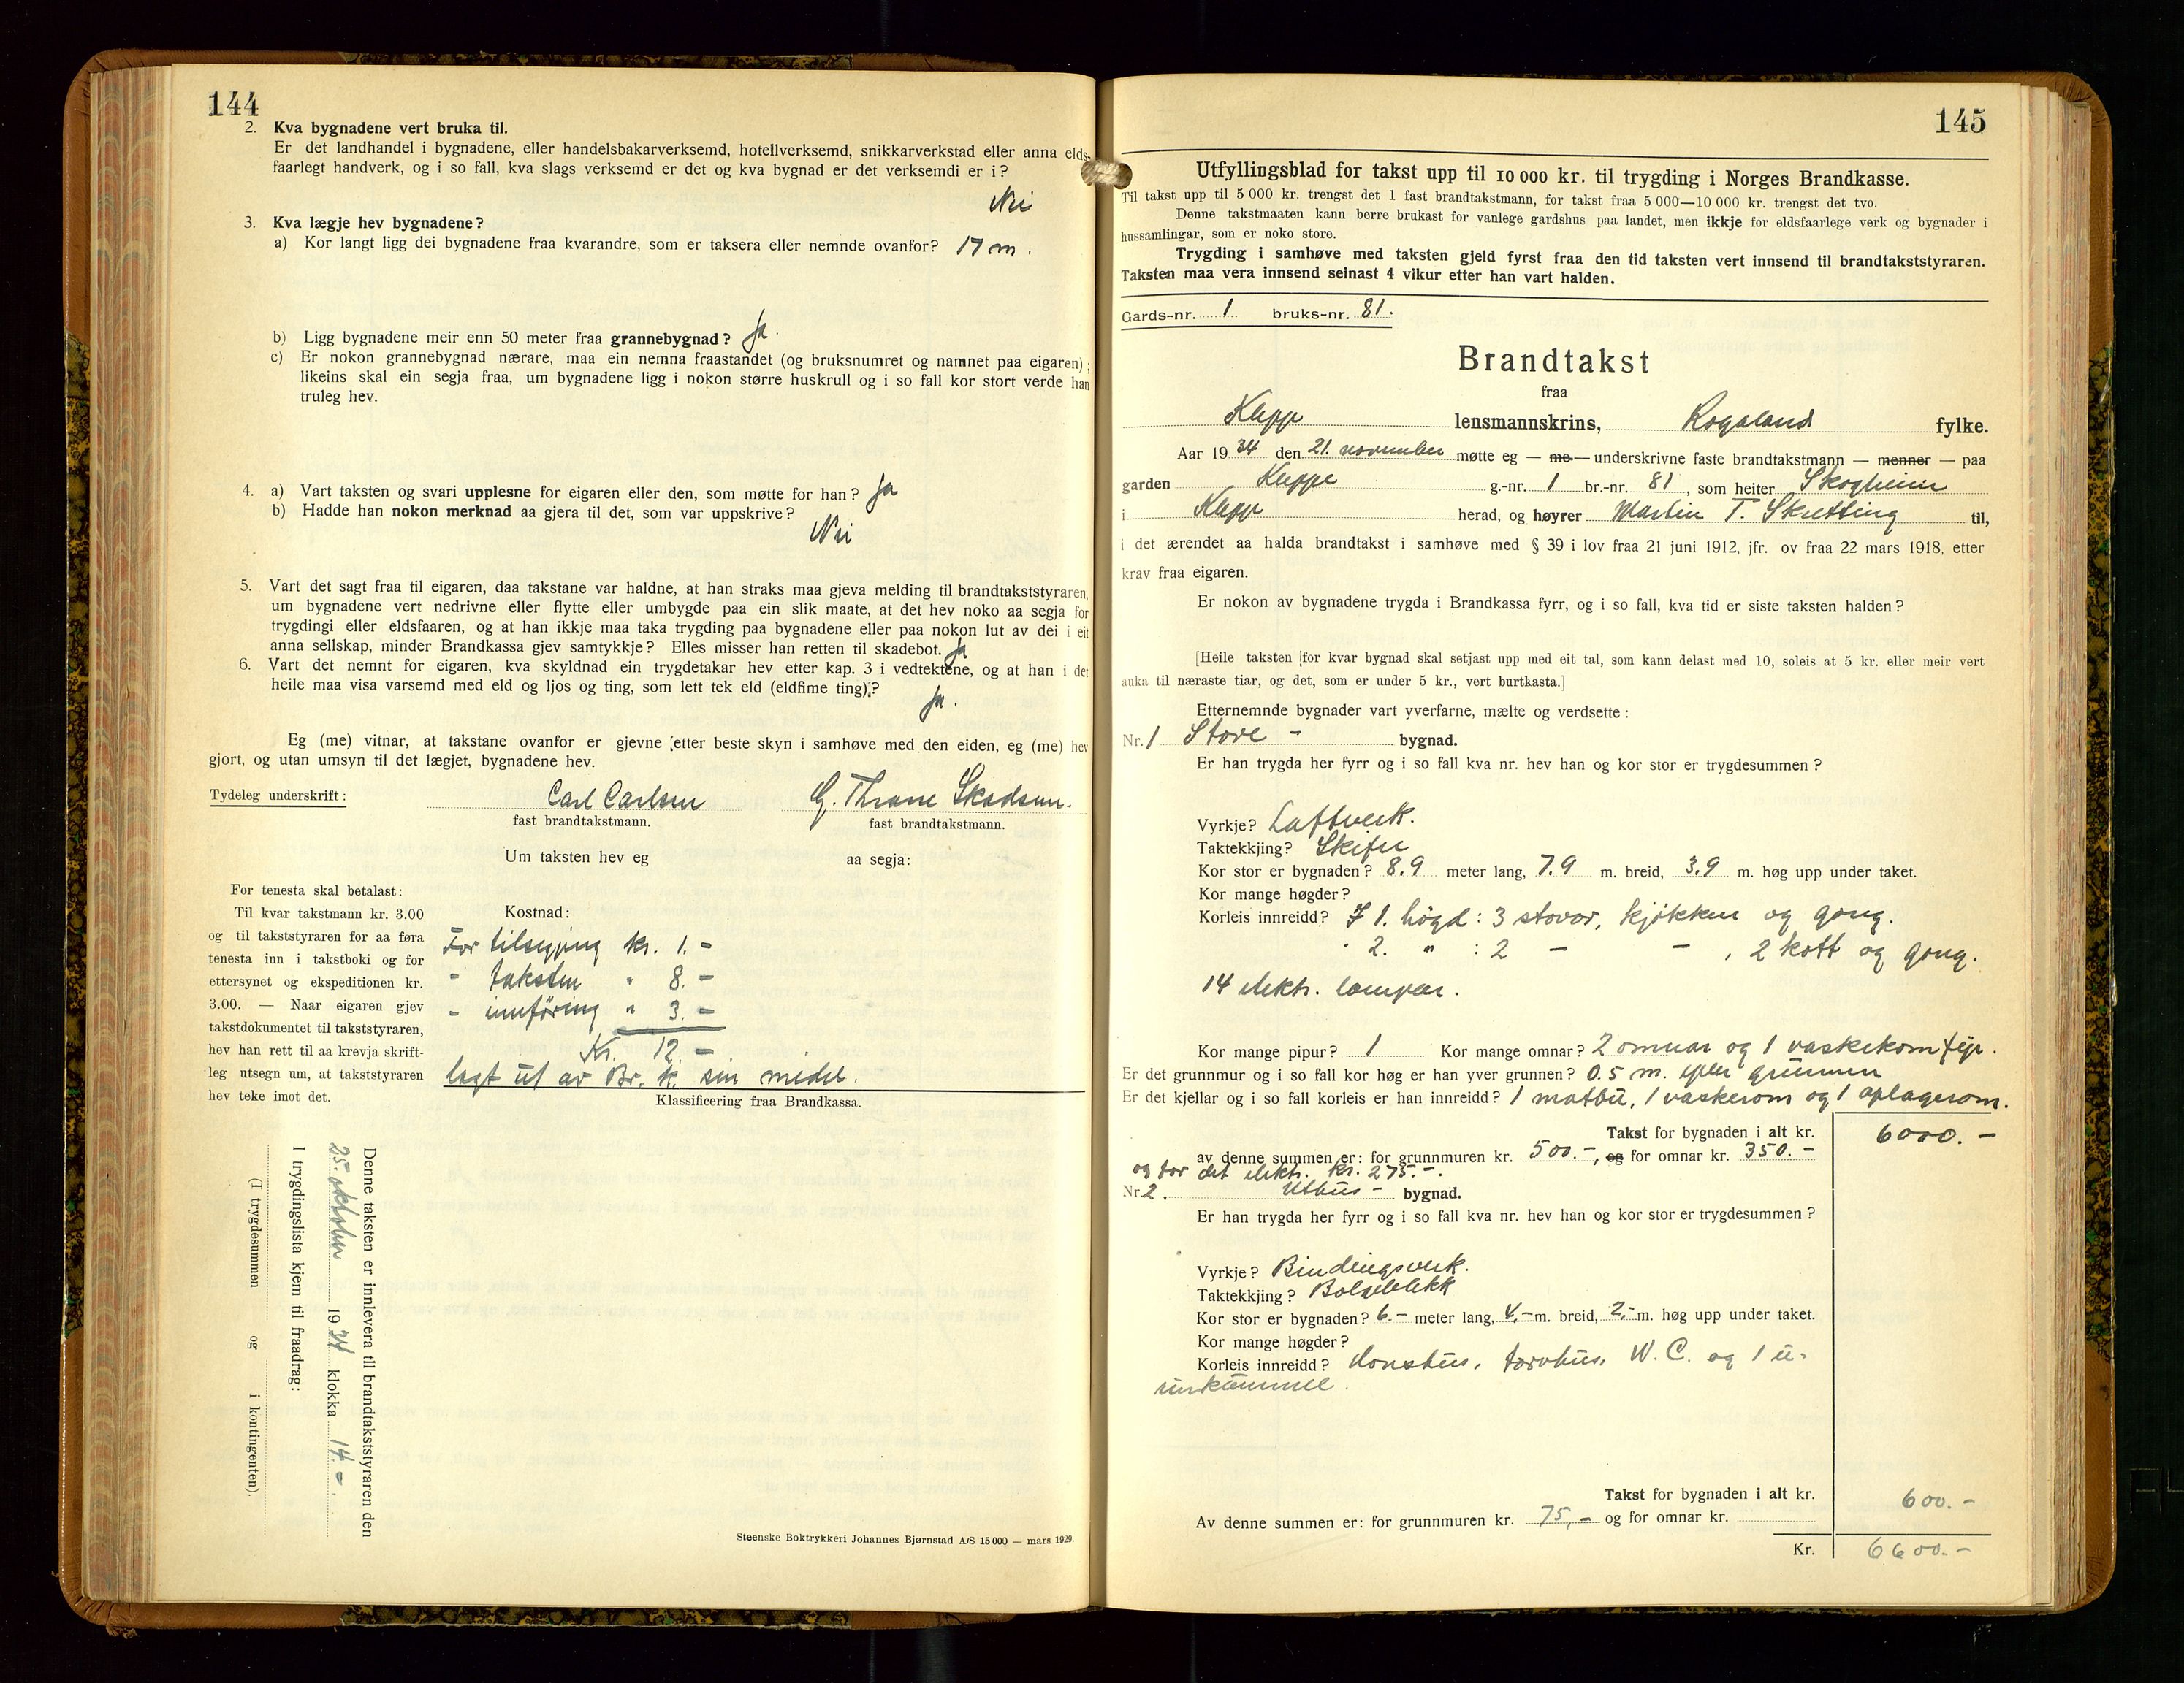 144
2. Kva bygnadene vert bruka til.
Er det landhandel i bygnadene, eller handelsbakarverksemd, hotellverksemd, snikkarverkstad eller anna elds-
faarlegt handverk, og i so fall, kva slags verksemd er det og kva bygnad er det verksemdi er i?
Nei
3. Kva lægje hev bygnadene?
a) Kor langt ligg dei bygnadene fraa kvarandre, som er taksera eller nemnde ovanfor? 17 m.
b) Ligg bygnadene meir enn 50 meter fraa grannebygnad? Ja.
c) Er nokon grannebygnad nærare, maa ein nemna fraastandet (og bruksnumret og namnet paa eigaren);
likeins skal ein segja fraa, um bygnadene ligg i nokon større huskrull og i so fall kor stort verde han
truleg hev.
4. a) Vart taksten og svari upplesne for eigaren eller den, som møtte for han? Ja
b) Hadde han nokon merknad aa gjera til det, som var uppskrive?
Nei
5. Vart det sagt fraa til eigaren, daa takstane var haldne, at han straks maa gjeva melding til brandtakststyraren,
um bygnadene vert nedrivne eller flytte eller umbygde paa ein slik maate, at det hev noko aa segja for
trygdingi eller eldsfaaren, og at han ikkje maa taka trygding paa bygnadene eller paa nokon lut av dei i eit
anna sellskap, minder Brandkassa gjev samtykkje? Elles misser han retten til skadebot. Ja
6. Vart det nemnt for eigaren, kva skyldnad ein trygdetakar hev etter kap. 3 i vedtektene, og at han i det
heile maa visa varsemd med eld og ljos og ting, som lett tek eld (eldfime ting)?
Ja.
Eg (me) vitnar, at takstane ovanfor er gjevne etter beste skyn i samhøve med den eiden, eg (me) hev
gjort, og utan umsyn til det lægjet, bygnadene hev.
Tydeleg underskrift: Carl Carlsen G. Thrane Skadsem.
fast brandtakstmann. fast brandtakstmann.
Um taksten hev eg aa segja:
For tenesta skal betalast:
Til kvar takstmann kr. 3.00
og til takststyraren for aa føra
tenesta inn i takstboki og for
ettersynet og ekspeditionen kr.
3.00. — Naar eigaren gjev
takstdokumentet til takststyraren,
hev han rett til aa krevja skrift-
leg utsegn um, at takststyraren
hev teke imot det.
Kostnad:
For tilsegjing kr. 1.-
" taksten " 8.-
" innføring " 3.-
Kr. 12.-
lagt ut av Br. k. sin midel.
Klassificering fraa Brandkassa.
Denne taksten er innlevera til brandtakststyraren den
25. oktober 1934 klokka 14.-.
I trygdingslista kjem til fraadrag:
(I trygdesummen og i kontingenten).
Steenske Boktrykkeri Johannes Bjørnstad A/S 15 000 — mars 1929.
145
Utfyllingsblad for takst upp til 10 000 kr. til trygding i Norges Brandkasse.
Til takst upp til 5 000 kr. trengst det 1 fast brandtakstmann, for takst fraa 5 000—10 000 kr. trengst det tvo.
Denne takstmaaten kann berre brukast for vanlege gardshus paa landet, men ikkje for eldsfaarlege verk og bygnader i
hussamlingar, som er noko store.
Trygding i samhøve med taksten gjeld fyrst fraa den tid taksten vert innsend til brandtakststyraren.
Taksten maa vera innsend seinast 4 vikur etter han vart halden.
Gards-nr. 1 bruks-nr. 81.
Brandtakst
fraa
Klepp lensmannskrins, Rogaland fylke.
Aar 1934 den 21. november møtte eg — me — underskrivne faste brandtakstmann — menner — paa
garden Kleppe g.-nr. 1 br.-nr. 81, som heiter Skogheim
i Klepp herad, og høyrer Martin T. Skretting til,
i det ærendet aa halda brandtakst i samhøve med § 39 i lov fraa 21 juni 1912, jfr. ov fraa 22 mars 1918, etter
krav fraa eigaren.
Er nokon av bygnadene trygda i Brandkassa fyrr, og i so fall, kva tid er siste taksten halden?
[Heile taksten for kvar bygnad skal setjast upp med eit tal, som kann delast med 10, soleis at 5 kr. eller meir vert
auka til næraste tiar, og det, som er under 5 kr., vert burtkasta.]
Etternemnde bygnader vart yverfarne, mælte og verdsette:
Nr. 1 Stove - bygnad.
Er han trygda her fyrr og i so fall kva nr. hev han og kor stor er trygdesummen?
Vyrkje? Laftverk.
Taktekkjing? Skifer
Kor stor er bygnaden? 8.9 meter lang, 7.9 m. breid, 3.9 m. høg upp under taket.
Kor mange høgder?
Korleis innreidd? I 1. høgd: 3 stovor, kjøkken og gong.
" 2. " : 2 - - , 2 kott og gong.
14 elektr. lampor.
Kor mange pipur? 1 Kor mange omnar? 2 omnar og 1 vaskekomfyr.
Er det grunnmur og i so fall kor høg er han yver grunnen? 0.5 m. yver grunnen
Er det kjellar og i so fall korleis er han innreidd? 1 matbu, 1 vaskerom og 1 oplagsrom.
Takst for bygnaden i alt kr. 6000.-
av denne summen er: for grunnmuren kr. 500.-, og for omnar kr. 350.-
og for det elektr. kr. 275.-.
Nr. 2. Uthus - bygnad.
Er han trygda her fyrr og i so fall kva nr. hev han og kor stor er trygdesummen?
Vyrkje? Bindingsverk.
Taktekkjing? Bølgeblekk
Kor stor er bygnaden? 6.- meter lang, 4,- m. breid, 2,- m. høg upp under taket.
Kor mange høgder?
Korleis innreidd? Hønshus, torvhus, W. C. og 1 u-
rinkummel.
Takst for bygnaden i alt kr. 600.-
Av denne summen er: for grunnmuren kr. 75,- og for omnar kr.
Kr. 6600.-